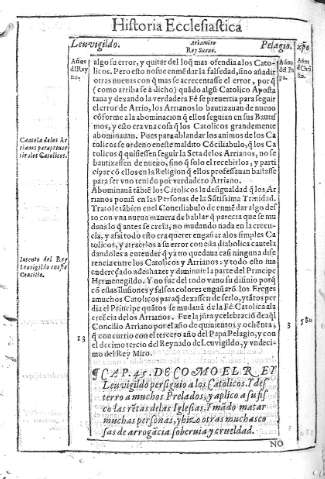 Historia Ecclesiastica
Leuvigildo. Arhamiro Rey Suevo. Pelagio. xp̃o
Años del Rey
Años del Pa
Años de Chri
algo su error, y quitar del lo q̃ mas ofendia a los Cato-
licos. Pero esto no fue enmẽdar la falsedad, sino añadir
otras nuevas con q̃ mas se acrecentasse el error, por q̃
(como arriba se à dicho) quãdo algũ Catolico Aposta
tava y dexando la verdadera Fè se prevertia para seguir
el error de Arrio, los Arrianos lo bautizavan de nuevo
cõforme a la abominacion q̃ ellos seguian en sus Bautis-
mos, y esto era una cosa q̃ los Catolicos grandemente
abominavan. Pues para ablandar los animos de los Ca-
tolicos se ordeno en este maldito Cõciliabulo, q̃ los Ca-
tolicos q̃ quisiessen seguir la Seta de los Arrianos, no se
bautizassen de nuevo, sino q̃ solo el recebirlos, y parti
cipar cõ ellos en la Religion q̃ ellos professavan bastasse
para ser uno tenido por verdadero Arriano.
Abominavã tãbiẽ los Catolicos la desigualdad q̃ los Ar
rianos ponian en las Personas de la Sãtissima Trinidad.
Tratose tãbien en el Conciliabulo de enmẽdar algo des
to con una nueva manera de hablar q̃ parecia que se mu
dava lo q̃ antes se creia, no mudando nada en la creen-
cia, y assi todo esto era querer engañar a los simples Ca
tolicos, y atraerlos a su error con esta diabolica cautela
dandoles a entender q̃ ya no quedava casi ninguna dife
rencia entre los Catolicos y Arrianos: y todo ello iva
endereçado a deshazer y diminuir la parte del Principe
Hermenegildo. Y no fue del todo vano su disinio porq̃
cõ estas ilusiones y falsos colores engañarõ los Ereges
muchos Catolicos para q̃ dexassen de serlo,
el Principe quãtos se mudavã de la Fè Catolica a la
creencia de los Arrianos. Fue la jũta y celebraciõ de aq̃l
Concilio Arriano por el año de quinientos y ochẽta, q̃
que currio con el tercero año del Papa Pelagio, y con
el decimo tercio del Reynado de Leuvigildo, y undeci
mo del Rey Miro.
Cautela de los Ar
rianos para pervertir
a los Catolicos.
Intento del Rey
Leuvigildo en este
Concilio.
13
3
580
¶ CAP. 45. DE COMO EL REY
Leuvigildo persiguio a los Catolicos. Y des
terro a muchos Prelados, y aplico a su fis
co las rẽtas de las Iglesias. Y mãdò matar
muchas personas, y hizo otras muchas co
sas de arrogãcia sobervia y crueldad.
NO